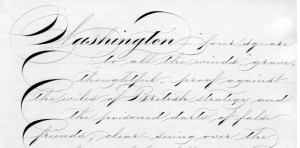 Washington - four square
to all the winds, grave,
thoughtful, proof against
the wiles of British strategy and
the poisoned darts of false
friends, clear-seeing over the